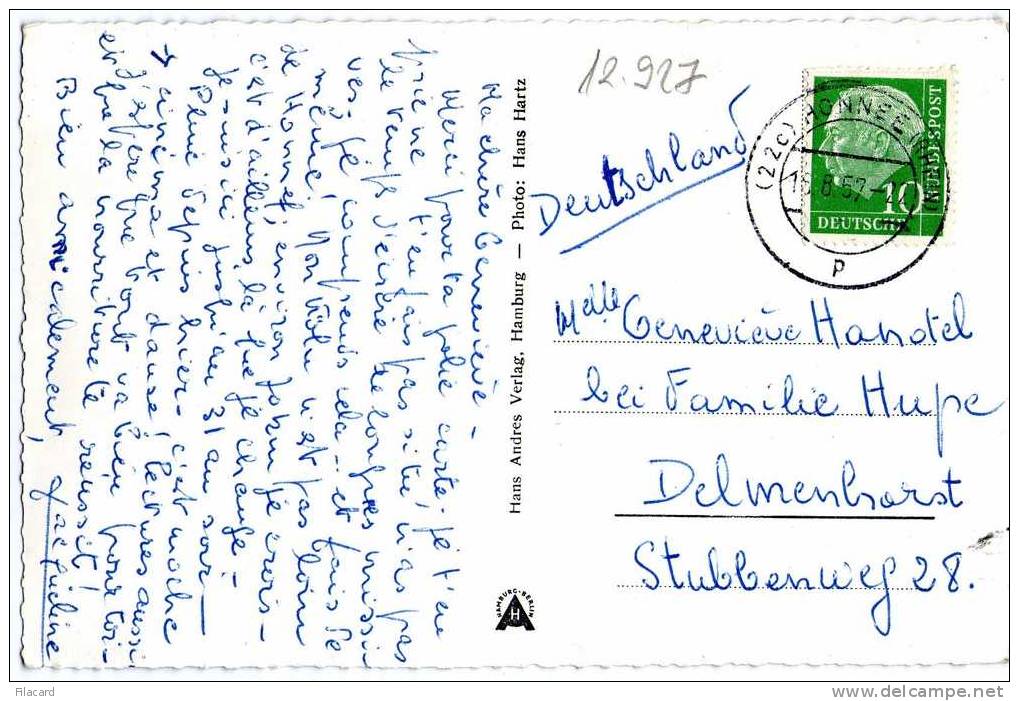 Ma chère Geneviève -
Merci pour ta jolie carte; je t'en
prie ne t'en fais pas si tu n'as pas
le temps d'écrire de longues missi
ves, je comprends cela - et fais de
même! n'est pas loin
de Honnef, environ 20 km je crois -
c'est d'ailleurs là que je change!
Je suis ici jusqu'au 31 au soir -
Pluie depuis hier - c'est moche
→ cinéma et danse, lectures aussi
J'espère que tout va bien pour toi -
et que la nourriture te réussit!
Bien amicalement, Jacqueline
Hans Andres Verlag, Hamburg — Photo: Hans Hartz
HAMBURG-BERLIN
H
12.927
Deutschland
(22c) HONNEF
15.8.57
p
10
DEUTSCHE
BUNDESPOST
Melle Geneviève Hanotel
bei Familie Hupe
Delmenhorst
Stubbenweg 28.
Filacard
www.delcampe.net